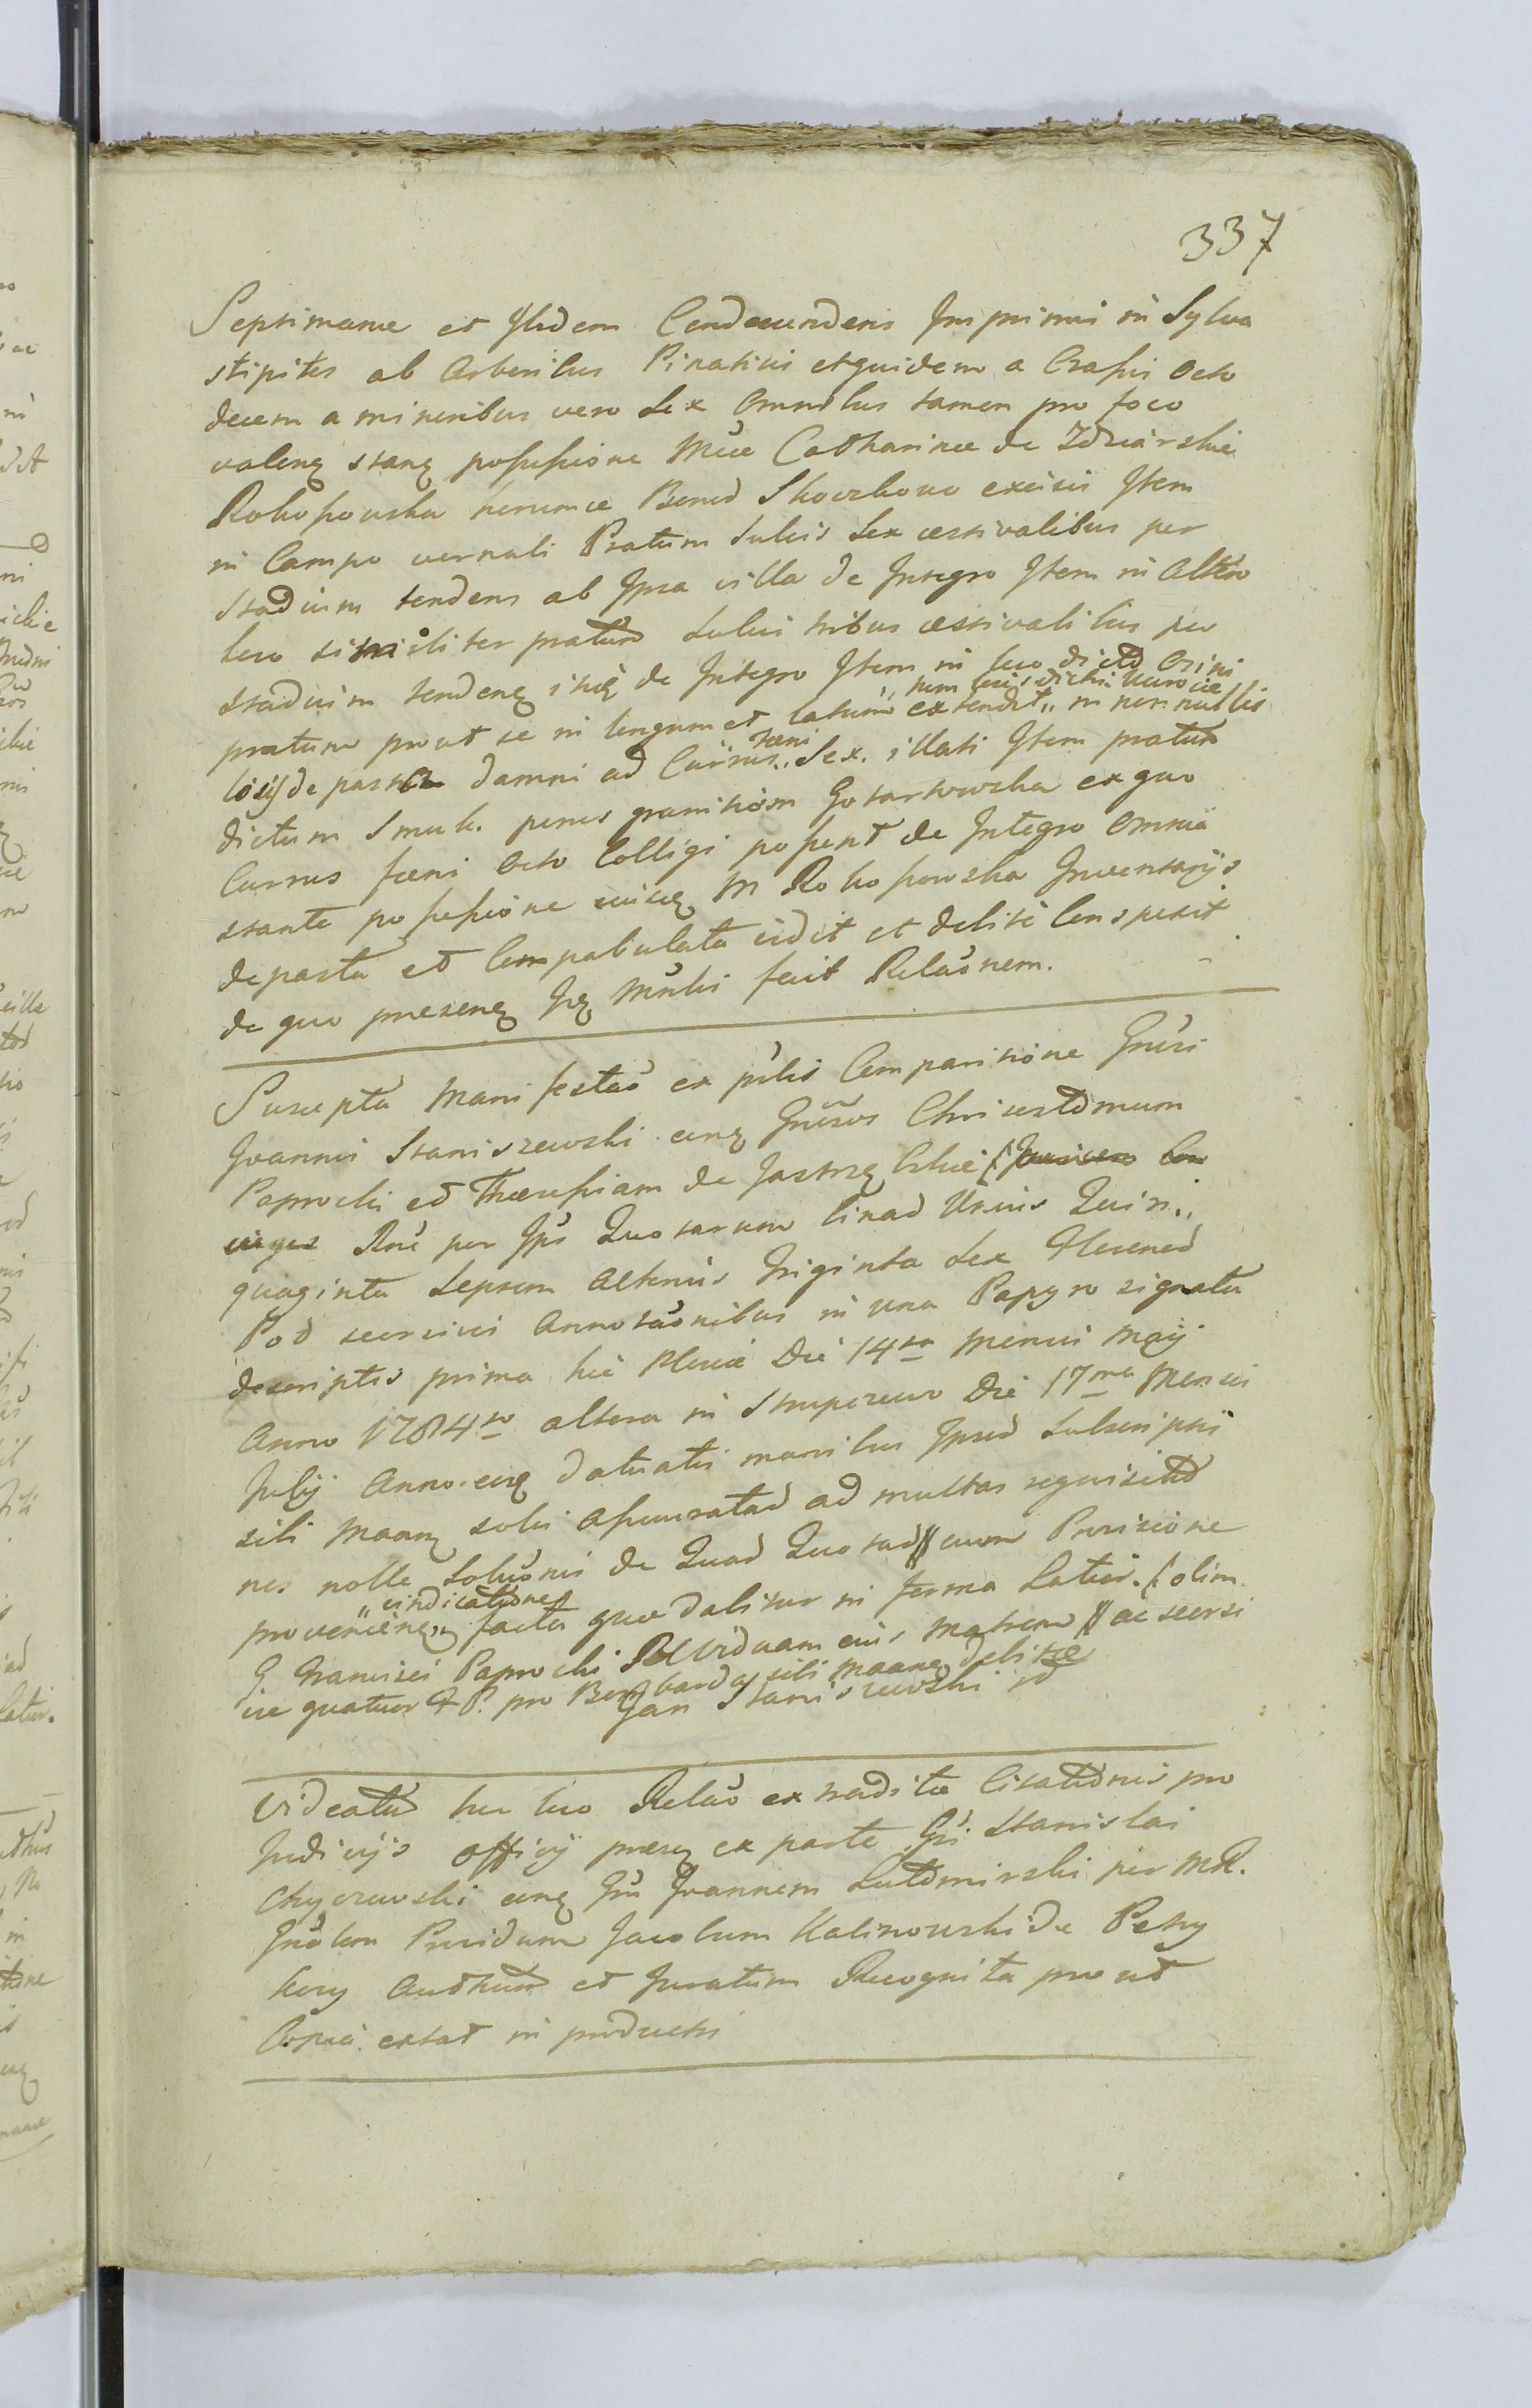 337
Septimanae et Ibidem Condescendens Imprimis in Sylva
stipites ab Arboribus Pinativis etquidem a Crassis Octo
decem a minoribus vero Sex Omnibus tamen pro foco
valenq stanq possessione Mcae Catharinae de Zdziarskie
Rokossowska herumce Bonod Skorzkowo excisis Item
in Campo vernali Pratum Sulcis Sex aestivalibus per
Stadium tendens ab Ipsa villa de Integro Item in Altero
loco similiter pratum Sulcis tribus aestivalibus per
stadium tendenq itiq de Integro Item in loco dicto Osini
pratum prout se in longum et latum extendit,, in non nullis
locis de pasto damni ad Currus,, faeni Sex. illati Item pratum
dictum Smuk. penes granitiem Gotartowska ex quo
Currus faeni Octo Colligi possent de Integro Omnia
stante possessione eiusq M Rokossowska Inventarijs
depasta et Compabulata vidit et debite Conspexit
de quo praesenq Irq Mnbi fecit Relaonem.
Suscepta Manifestao ex pnlis Comparitione Gnri
Joannis Staniszewski conq Gnrsos Chrisostomum
Paprocki et Theressiam de Jastrzębskie
Rne per Ips Quotarum Unius Quin..
quaginta Septem Alterius Triginta Sex Flrenod
Pod seorsivis Annotaonibus in una Papyro signata
descriptis prima hic Plociae Die 14ta Mensis Maij
Anno 1784to altera in Strupczewo Die 17ma Mensis
Julij Anno eoq datuatis manibus Ipsod Subscriptis
sibi Maanq solvi Assecuratad ad multas requisitod
nes nolle Soluonis de Quad Quotad cum Provisione
provenienq,, vindicatione,, facta quae dabitur in forma Latior. (: olim
G Francisci Paprocki Viduam eius Matrem ac seorsi
ve quatuor # P. pro Bombarda sibi Maanq debitae
Jan Staniszewski
Videatur hic loco Relao extraditae Citationis pro
Judicijs Officij praesq ex parte Gsi Stanislai
Chyczewski conq Gsu Joannem Lutomirski per MR.
Gnolem Providum Jacobum Kalinowski de Pet
Authum et Juratum Recognita prout
Copia extat in productis